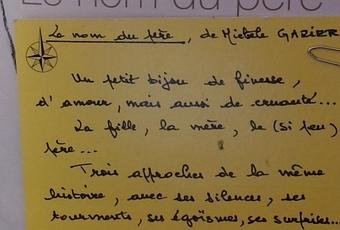 Le nom du père
Le nom du père, de Michèle GAZIER
Un petit bijou de finesse,
d'amour, mais aussi de cruauté...
La fille, la mère, le (si peu)
père...
Trois approches de la même
histoire, avec ses silences, ses
tourments, ses égoïsmes, ses surprises...